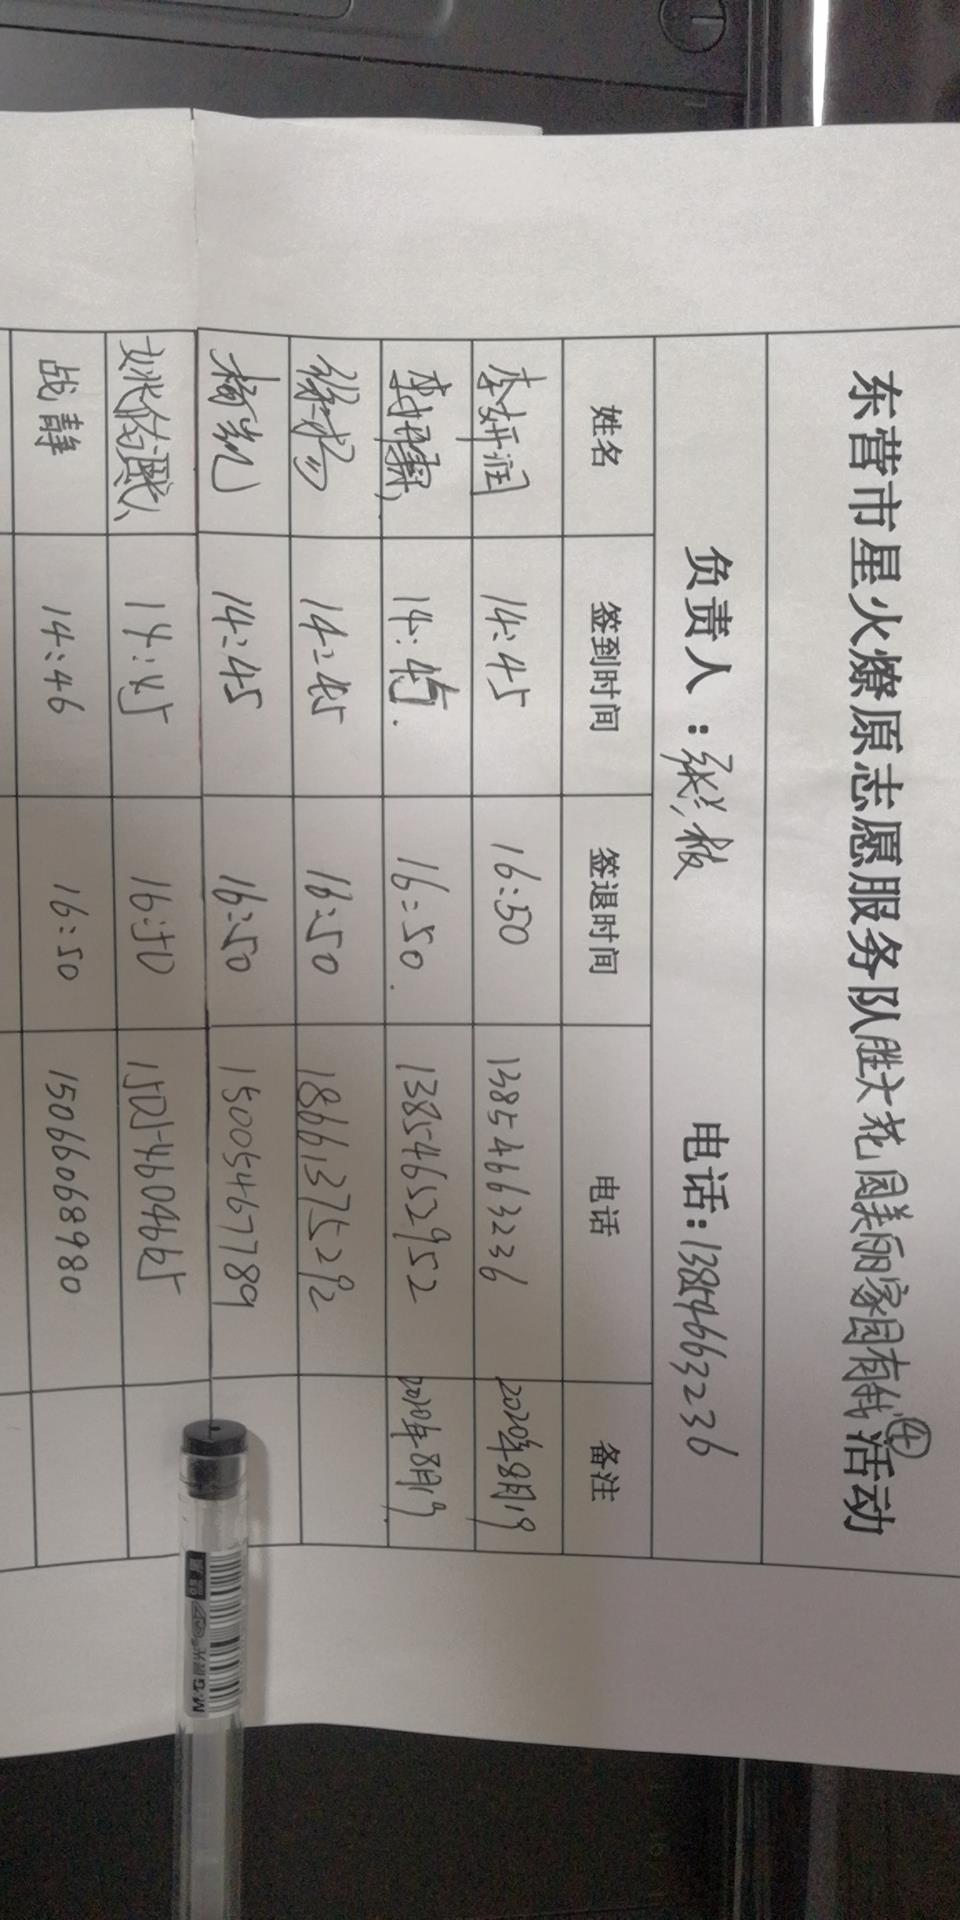 东营市星火燎原志愿服务队胜大花园美丽家园有我④活动
负责人：张 电话：13854663236
姓名 签到时间 签退时间 电话 备注
李妍润 14:45 16:50 13854663236 2020年8月19
李 14:45. 16:50. 13854652952 2020年8月19
徐杨 14:45 16:50 18661375292
杨凯 14:45 16:50 15005467789
姚 14:45 16:50 15054604665
战静 14:46 16:50 15066068980
M&G